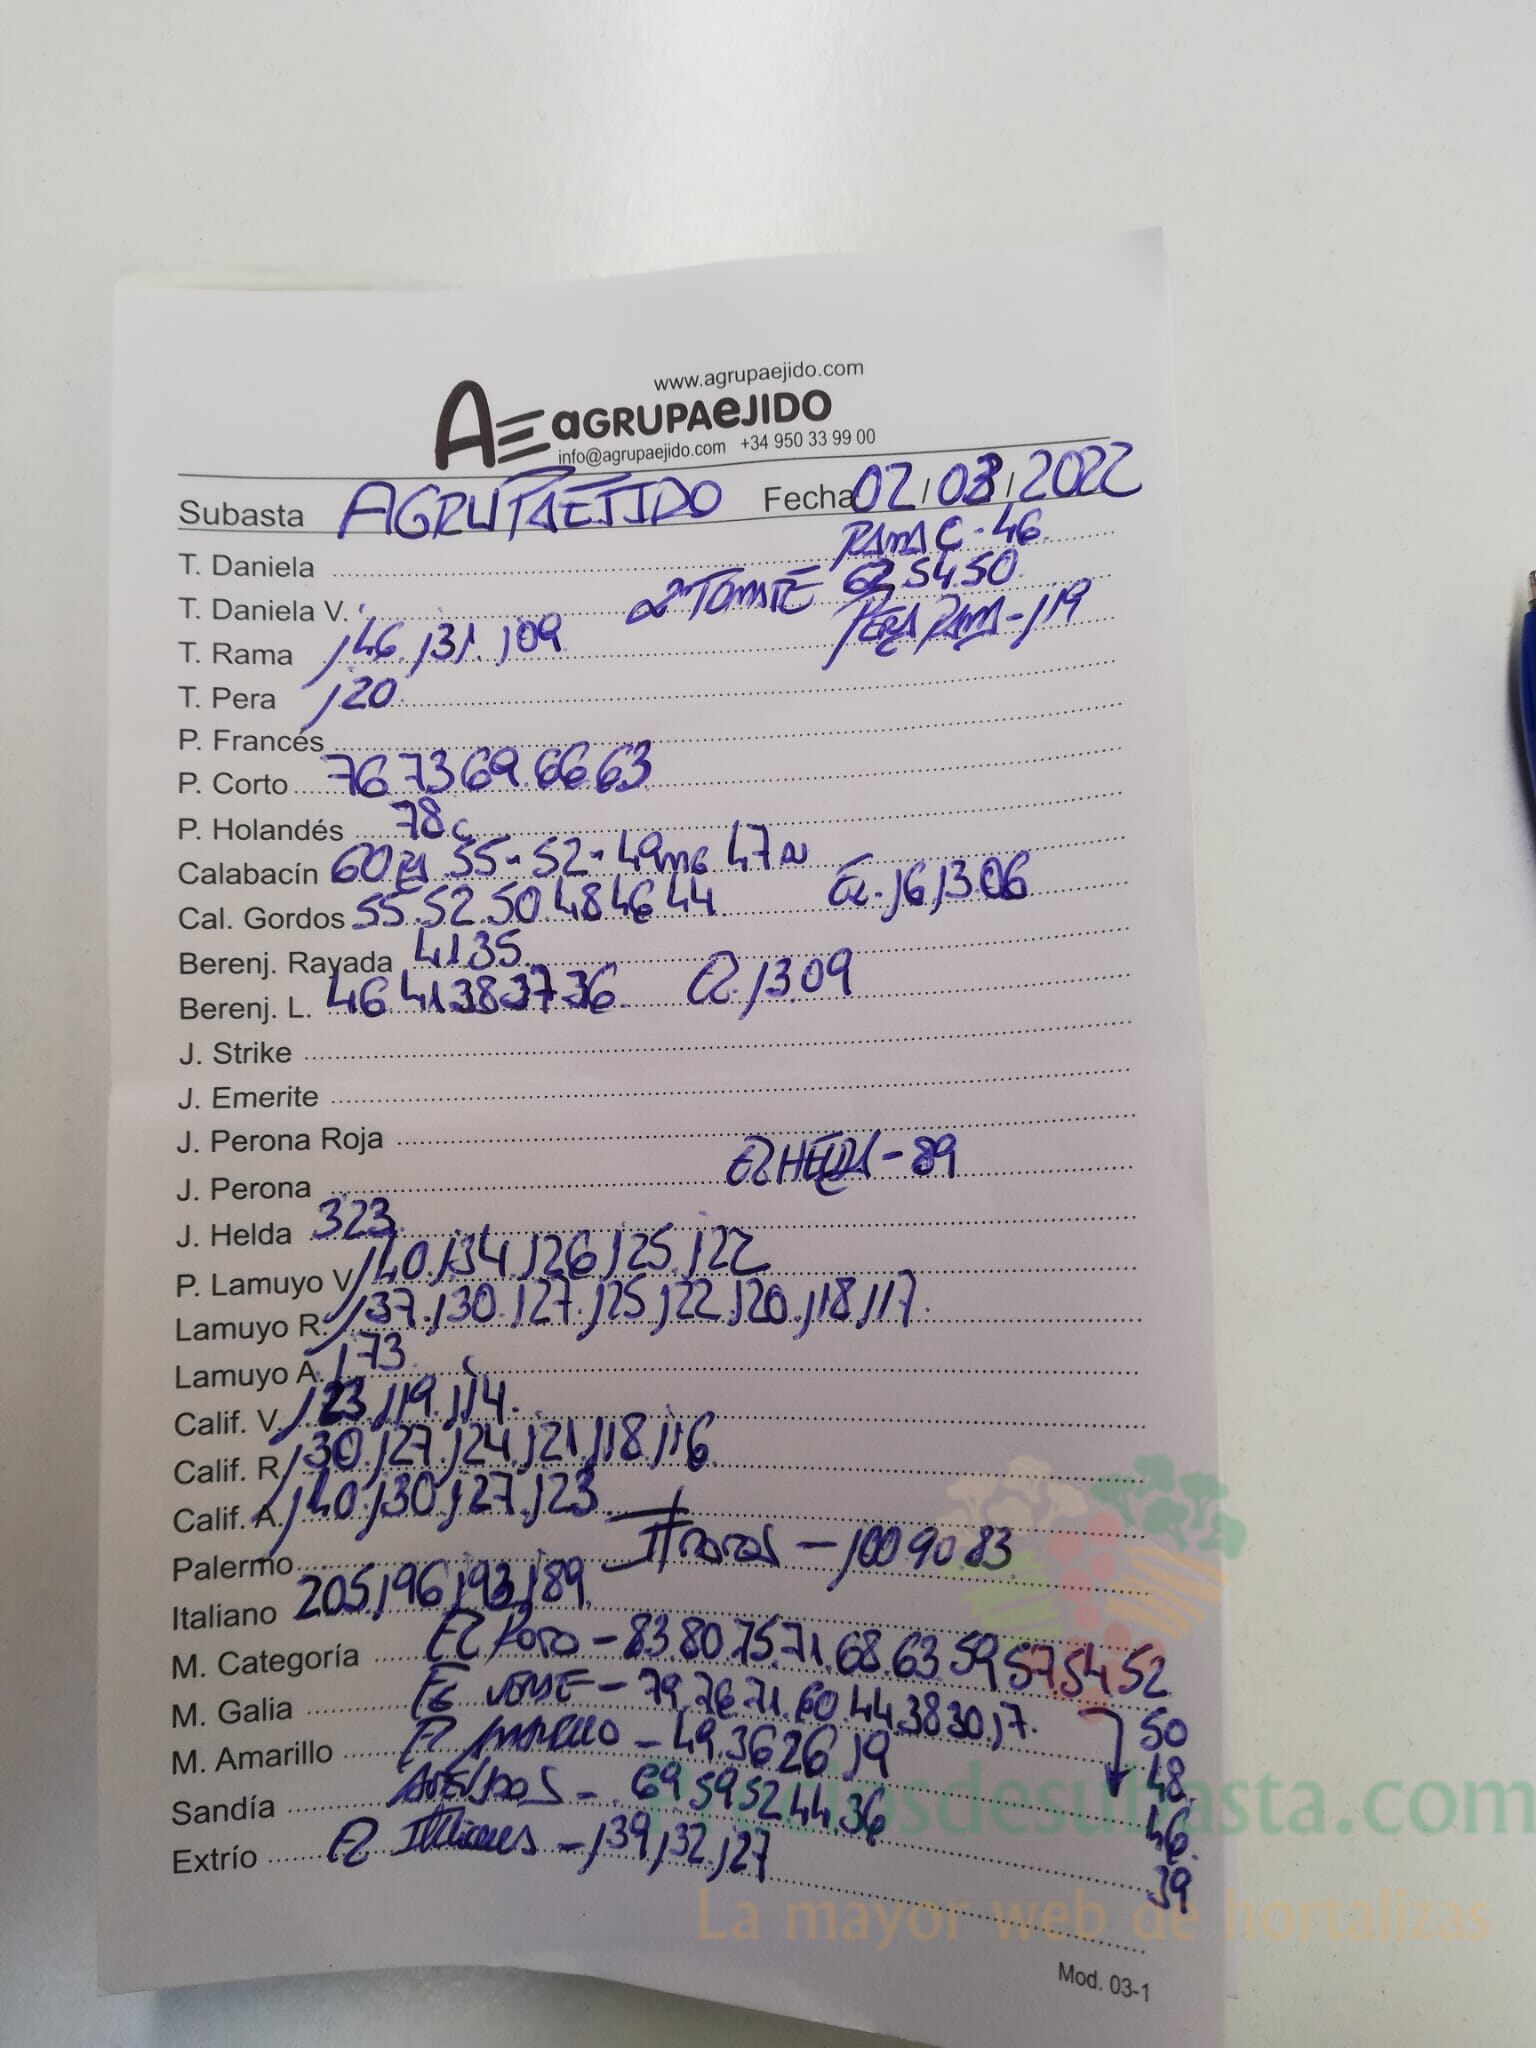 www.agrupaejido.com
AE aGRUPAeJIDO
info@agrupaejido.com +34 950 33 99 00
Subasta AGRUPAEJIDO Fecha 02/03/2022
T. Daniela RAMA C - 46
T. Daniela V. 2ª TOMATE 62.54.50
T. Rama 146.131.109 PERA RAMA - 119
T. Pera 120
P. Francés
P. Corto 76 73 69.66 63
P. Holandés 78 c
Calabacín 60 55-52-49 MG 47 N
Cal. Gordos 55.52.50.48 46 44 E2. 16 13.06
Berenj. Rayada 41 35
Berenj. L. 46 41 38 37 36 E2. 13.09
J. Strike
J. Emerite
J. Perona Roja
J. Perona E2 HELDA - 89
J. Helda 323
P. Lamuyo V 140.134.126 125.122
Lamuyo R. 137.130.127.125 122.120.118 117.
Lamuyo A. 173
Calif. V. 123 119.114.
Calif. R. 130.127.124.121.118.116
Calif. A. 140.130.127.123
Palermo - 100 90 83
Italiano 205 196 193 189
M. Categoría E2 ROJO - 83.80.75.71.68.63.59 57.54 52
M. Galia E2 VERDE - 79.76.71.60.44.38 30.17. 50
M. Amarillo E2 AMARILLO - 49.36 26 19 48
Sandía ASURCADOS - 69 59 52 44.36 46
Extrío E2 ITALIANOS - 139 132.127 39
preciosdesubasta.com
La mayor web de hortalizas
Mod. 03-1